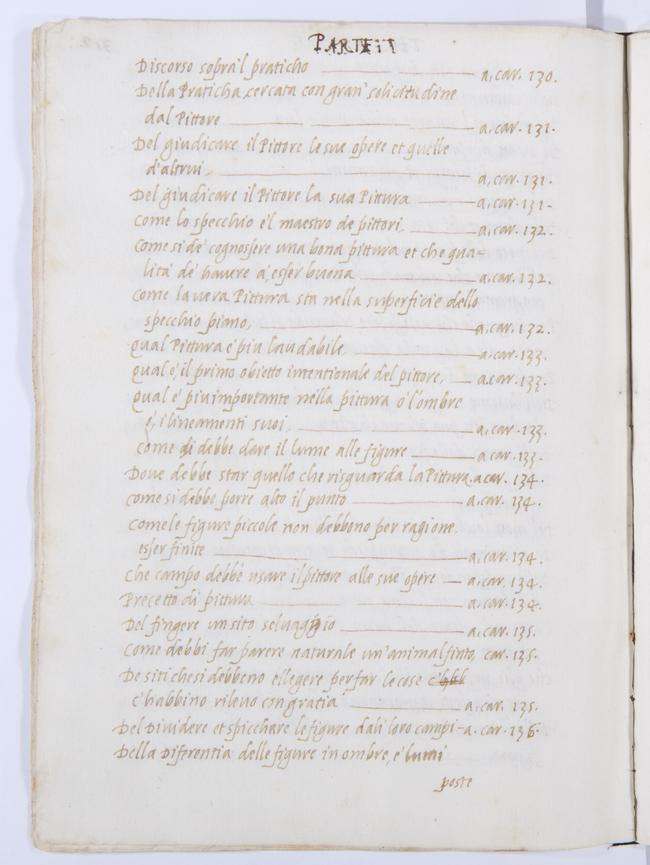 PARTE II
Discorso sopra'l praticho a. car. 130.
Della Praticha, cercata con gran' solicitudine
dal Pittore a. car. 131.
Del giudicare il Pittore le sue opere et quelle
d'altrui. a. car. 131.
Del giudicare il Pittore la sua Pittura a. car. 131.
Come lo specchio e'l maestro de pittori, a. car. 132.
Come si de' cognoscere una bona pittura et che qua-
lità de' havere a' esser buona a. car. 132.
Come la vera Pittura sta nella superficie dello
specchio piano, a. car. 132.
qual Pittura e' piu laudabile, a. car. 133.
qual e', il primo obietto intentionale del pittore, a car. 133.
qual e' piu importante nella pittura o' l'ombre
o', i lineamenti suoi, a. car. 133.
Come di debbe dare il lume alle figure a. car. 133.
Dove debbe star quello che risguarda la Pittura. a car. 134.
come si debbe porre alto il punto a. car. 134.
Come le figure piccole non debbeno per ragione
esser finite a. car. 134.
Che campo debbe usare il pittore alle sue opere a. car. 134.
Precetto di pittura a. car. 134.
Del fingere un sito selvaggio a. car. 135.
Come debbi far parere naturale un'animal finto, car. 135.
De siti che si debbeno ellegere per far le cose
c'habbino rilevo con gratia a. car. 135.
Del Dividere et spicchare le figure dali loro campi a. car. 136.
Della Diferentia delle figure in ombre, e' lumi
poste